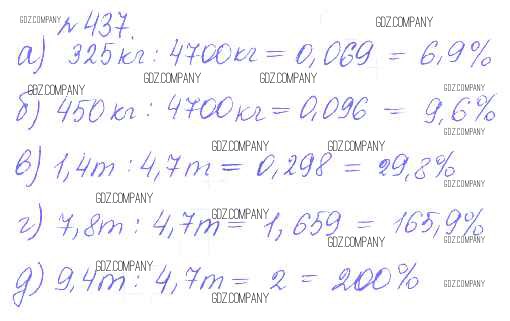 GDZ.COMPANY № 437. GDZ.COMPANY
а) 325кг : 4700кг = 0,069 = 6,9%
GDZ.COMPANY GDZ.COMPANY GDZ.COMPANY GDZ.COMPANY
б) 450кг : 4700кг = 0,096 = 9,6%
GDZ.COMPANY
GDZ.COMPANY GDZ.COMPANY
в) 1,4т : 4,7т = 0,298 = 29,8%
GDZ.COMPANY
GDZ.COMPANY
GDZ.COMPANY
г) 7,8т : 4,7т = 1,659 = 165,9%
GDZ.COMPANY GDZ.COMPANY
GDZ.COMPANY
д) 9,4т : 4,7т = 2 = 200%
GDZ.COMPANY GDZ.COMPANY